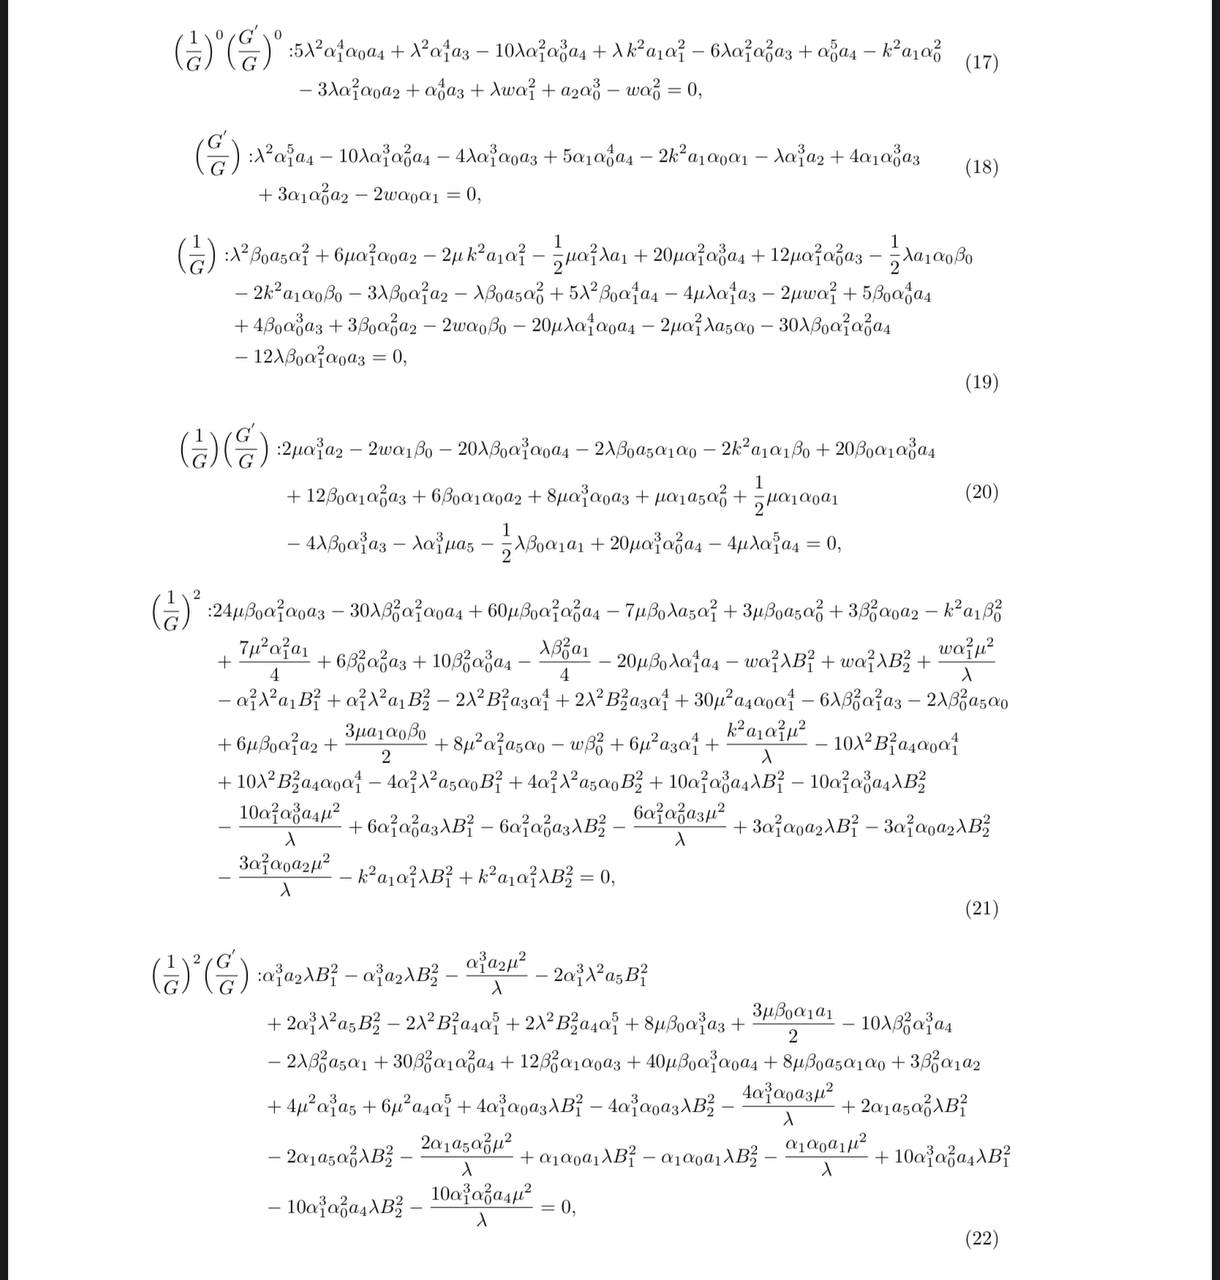 (1/G)^0 (G′/G)^0 :5λ²α₁⁴α₀a₄ + λ²α₁⁴a₃ − 10λα₁²α₀³a₄ + λk²a₁α₁² − 6λα₁²α₀²a₃ + α₀⁵a₄ − k²a₁α₀² (17)
− 3λα₁²α₀a₂ + α₀⁴a₃ + λwα₁² + a₂α₀³ − wα₀² = 0,
(G′/G) :λ²α₁⁵a₄ − 10λα₁³α₀²a₄ − 4λα₁³α₀a₃ + 5α₁α₀⁴a₄ − 2k²a₁α₀α₁ − λα₁³a₂ + 4α₁α₀³a₃ (18)
+ 3α₁α₀²a₂ − 2wα₀α₁ = 0,
(1/G) :λ²β₀a₅α₁² + 6μα₁²α₀a₂ − 2μk²a₁α₁² − 1/2 μα₁²λa₁ + 20μα₁²α₀³a₄ + 12μα₁²α₀²a₃ − 1/2 λa₁α₀β₀
− 2k²a₁α₀β₀ − 3λβ₀α₁²a₂ − λβ₀a₅α₀² + 5λ²β₀α₁⁴a₄ − 4μλα₁⁴a₃ − 2μwα₁² + 5β₀α₀⁴a₄
+ 4β₀α₀³a₃ + 3β₀α₀²a₂ − 2wα₀β₀ − 20μλα₁⁴α₀a₄ − 2μα₁²λa₅α₀ − 30λβ₀α₁²α₀²a₄
− 12λβ₀α₁²α₀a₃ = 0,
(19)
(1/G)(G′/G) :2μα₁³a₂ − 2wα₁β₀ − 20λβ₀α₁³α₀a₄ − 2λβ₀a₅α₁α₀ − 2k²a₁α₁β₀ + 20β₀α₁α₀³a₄
+ 12β₀α₁α₀²a₃ + 6β₀α₁α₀a₂ + 8μα₁³α₀a₃ + μα₁a₅α₀² + 1/2 μα₁α₀a₁ (20)
− 4λβ₀α₁³a₃ − λα₁³μa₅ − 1/2 λβ₀α₁a₁ + 20μα₁³α₀²a₄ − 4μλα₁⁵a₄ = 0,
(1/G)² :24μβ₀α₁²α₀a₃ − 30λβ₀²α₁²α₀a₄ + 60μβ₀α₁²α₀²a₄ − 7μβ₀λa₅α₁² + 3μβ₀a₅α₀² + 3β₀²α₀a₂ − k²a₁β₀²
+ 7μ²α₁²a₁/4 + 6β₀²α₀²a₃ + 10β₀²α₀³a₄ − λβ₀²a₁/4 − 20μβ₀λα₁⁴a₄ − wα₁²λB₁² + wα₁²λB₂² + wα₁²μ²/λ
− α₁²λ²a₁B₁² + α₁²λ²a₁B₂² − 2λ²B₁²a₃α₁⁴ + 2λ²B₂²a₃α₁⁴ + 30μ²a₄α₀α₁⁴ − 6λβ₀²α₁²a₃ − 2λβ₀²a₅α₀
+ 6μβ₀α₁²a₂ + 3μa₁α₀β₀/2 + 8μ²α₁²a₅α₀ − wβ₀² + 6μ²a₃α₁⁴ + k²a₁α₁²μ²/λ − 10λ²B₁²a₄α₀α₁⁴
+ 10λ²B₂²a₄α₀α₁⁴ − 4α₁²λ²a₅α₀B₁² + 4α₁²λ²a₅α₀B₂² + 10α₁²α₀³a₄λB₁² − 10α₁²α₀³a₄λB₂²
− 10α₁²α₀³a₄μ²/λ + 6α₁²α₀²a₃λB₁² − 6α₁²α₀²a₃λB₂² − 6α₁²α₀²a₃μ²/λ + 3α₁²α₀a₂λB₁² − 3α₁²α₀a₂λB₂²
− 3α₁²α₀a₂μ²/λ − k²a₁α₁²λB₁² + k²a₁α₁²λB₂² = 0,
(21)
(1/G)²(G′/G) :α₁³a₂λB₁² − α₁³a₂λB₂² − α₁³a₂μ²/λ − 2α₁³λ²a₅B₁²
+ 2α₁³λ²a₅B₂² − 2λ²B₁²a₄α₁⁵ + 2λ²B₂²a₄α₁⁵ + 8μβ₀α₁³a₃ + 3μβ₀α₁a₁/2 − 10λβ₀²α₁³a₄
− 2λβ₀²a₅α₁ + 30β₀²α₁α₀²a₄ + 12β₀²α₁α₀a₃ + 40μβ₀α₁³α₀a₄ + 8μβ₀a₅α₁α₀ + 3β₀²α₁a₂
+ 4μ²α₁³a₅ + 6μ²a₄α₁⁵ + 4α₁³α₀a₃λB₁² − 4α₁³α₀a₃λB₂² − 4α₁³α₀a₃μ²/λ + 2α₁a₅α₀²λB₁²
− 2α₁a₅α₀²λB₂² − 2α₁a₅α₀²μ²/λ + α₁α₀a₁λB₁² − α₁α₀a₁λB₂² − α₁α₀a₁μ²/λ + 10α₁³α₀²a₄λB₁²
− 10α₁³α₀²a₄λB₂² − 10α₁³α₀²a₄μ²/λ = 0,
(22)